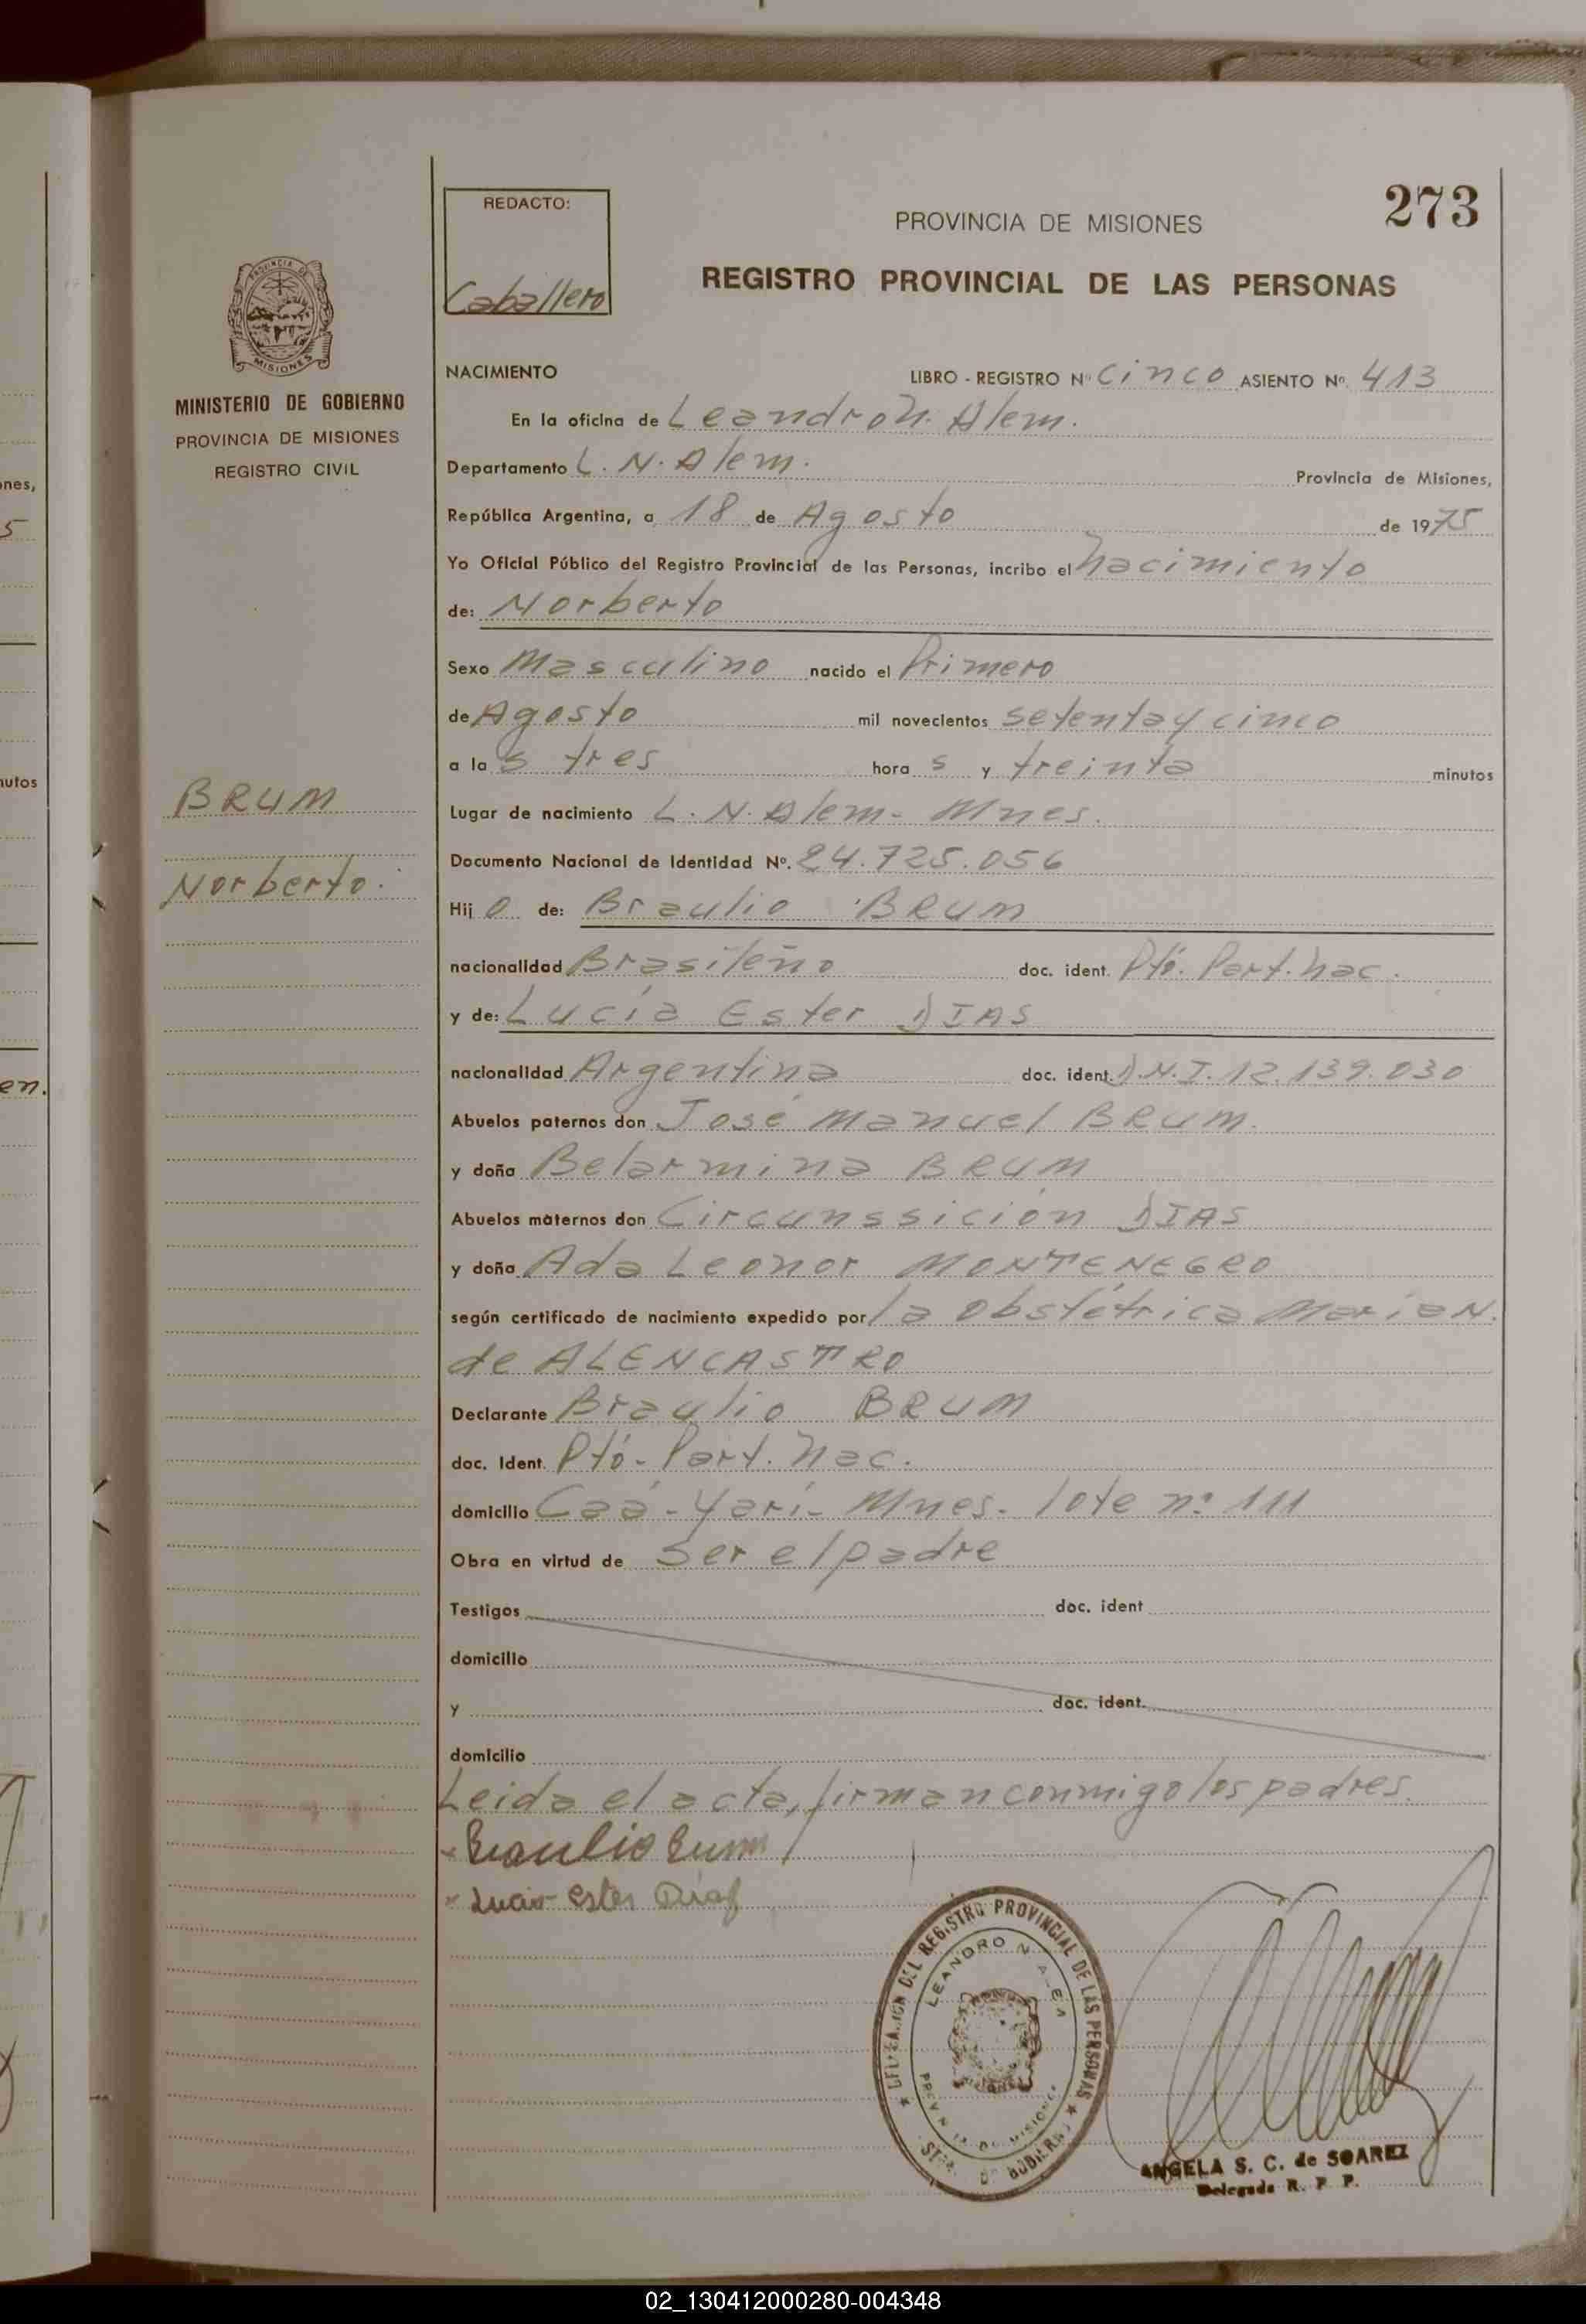 273
REDACTO:
Caballero
PROVINCIA DE MISIONES
REGISTRO PROVINCIAL DE LAS PERSONAS
PROVINCIA DE
MISIONES
MINISTERIO DE GOBIERNO
PROVINCIA DE MISIONES
REGISTRO CIVIL
BRUM
Norberto.
NACIMIENTO LIBRO - REGISTRO Nº Cinco ASIENTO Nº. 413
En la oficina de Leandro N. Alem.
Departamento L. N. Alem. Provincia de Misiones,
República Argentina, a 18 de Agosto de 1975
Yo Oficial Público del Registro Provincial de las Personas, incribo el nacimiento
de: Norberto
Sexo Masculino nacido el Primero
de Agosto mil novecientos setenta y cinco
a la s tres hora s y treinta minutos
Lugar de nacimiento L. N. Alem - Mnes.
Documento Nacional de Identidad Nº. 24.725.056
Hij o de: Braulio BRUM
nacionalidad Brasileño doc. ident. Ptó. Part. nac.
y de: Lucía Ester DIAS
nacionalidad Argentina doc. ident. D.N.I. 12.139.030
Abuelos paternos don José Manuel BRUM.
y doña Belarmina BRUM
Abuelos maternos don Circunssición DIAS
y doña Ada Leonor MONTENEGRO
según certificado de nacimiento expedido por la obstétrica Maria N.
de ALENCASTRO
Declarante Braulio BRUM
doc. Ident. Ptó - Part. nac.
domicilio Caá - Yarí - Mnes - lote nº 111
Obra en virtud de ser el padre
Testigos doc. ident
domicilio
y doc. ident.
domicilio
Leida el acta, firman conmigo los padres.
Braulio Brum
Lucia Ester Dias
DELEGACION DEL REGISTRO PROVINCIAL DE LAS PERSONAS
LEANDRO N. ALEM
ANGELA S. C. de SOAREZ
Delegada R. P. P.
nes,
5
nutos
en.
02_130412000280-004348